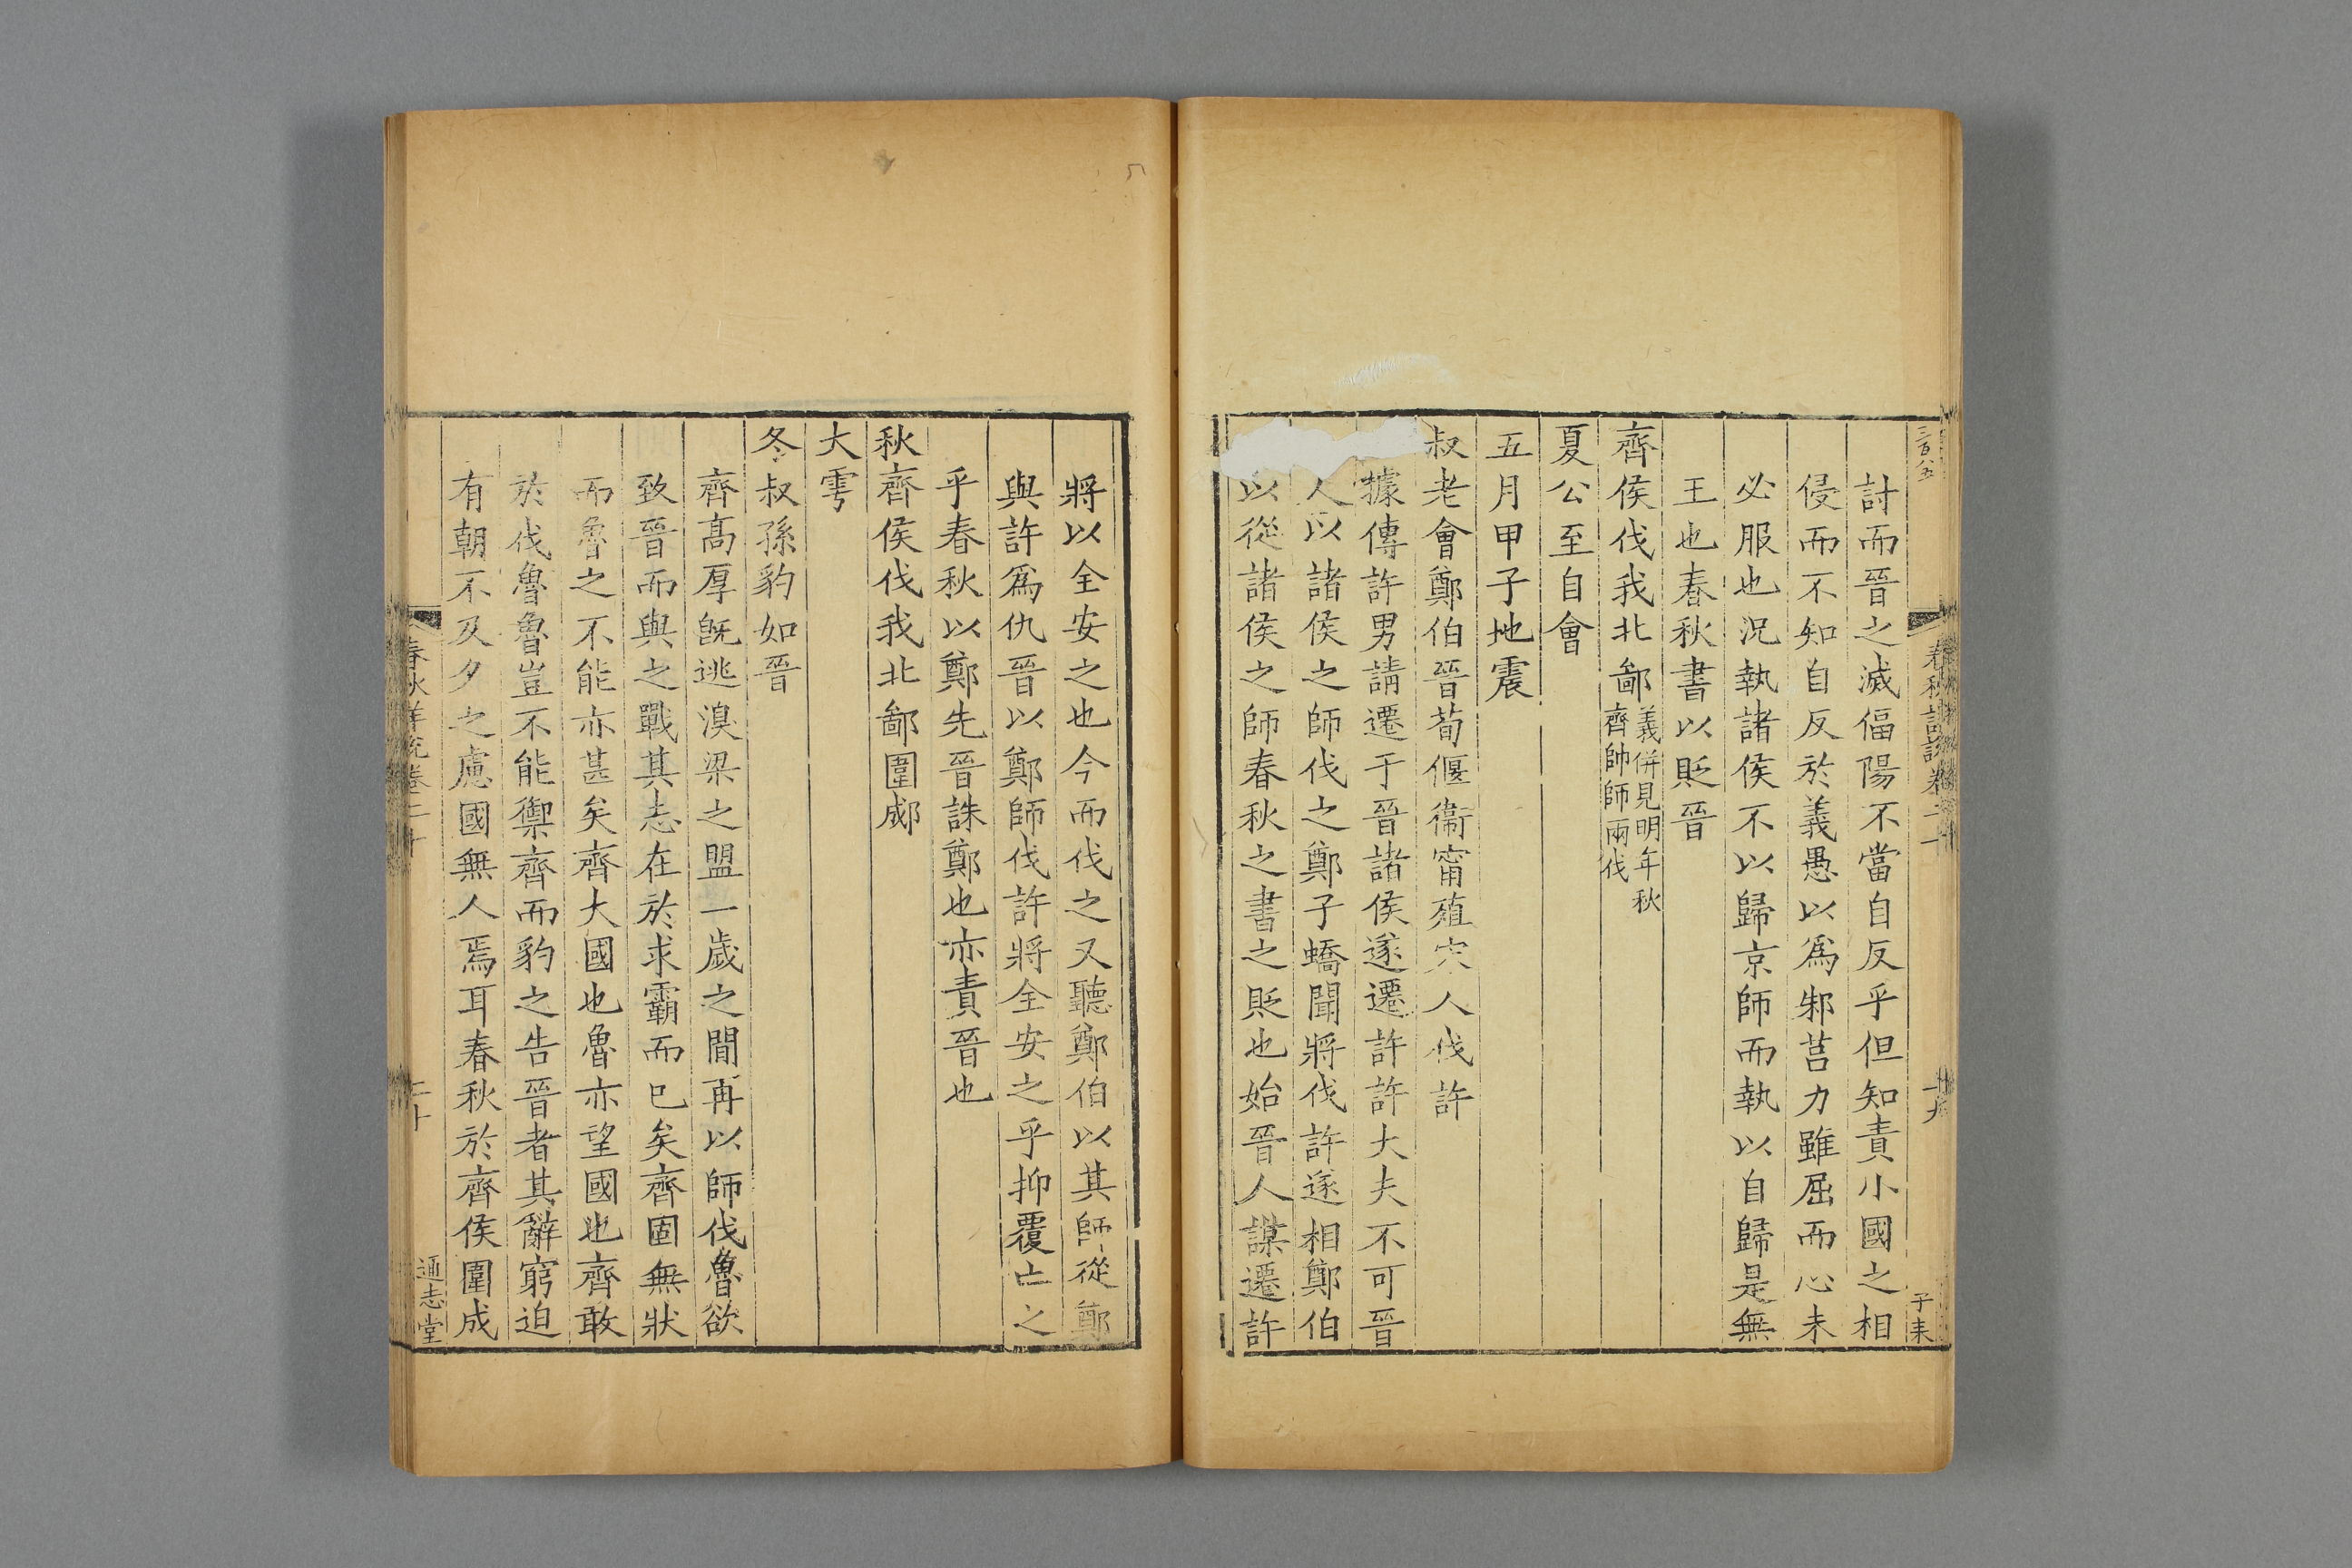 三百八五
春秋詳說卷二十
十九
子耒
討而晉之滅偪陽不當自反乎但知責小國之相
侵而不知自反於義愚以爲邾莒力雖屈而心未
必服也況執諸侯不以歸京師而執以自歸是無
王也春秋書以貶晉
齊侯伐我北鄙義併見明年秋
齊帥師兩伐
夏公至自會
五月甲子地震
叔老會鄭伯晉荀偃衞甯殖宋人伐許
據傳許男請遷于晉諸侯遂遷許許大夫不可晉
人以諸侯之師伐之鄭子蟜聞將伐許遂相鄭伯
以從諸侯之師春秋之書之貶也始晉人謀遷許
將以全安之也今而伐之又聽鄭伯以其師從鄭
與許爲仇晉以鄭師伐許將全安之乎抑覆亡之
乎春秋以鄭先晉誅鄭也亦責晉也
秋齊侯伐我北鄙圍郕
大雩
冬叔孫豹如晉
齊高厚旣逃湨梁之盟一歲之間再以師伐魯欲
致晉而與之戰其志在於求霸而已矣齊固無狀
而魯之不能亦甚矣齊大國也魯亦望國也齊敢
於伐魯魯豈不能禦齊而豹之告晉者其辭窮迫
有朝不及夕之慮國無人焉耳春秋於齊侯圍成
春秋詳說卷二十
二十
通志堂